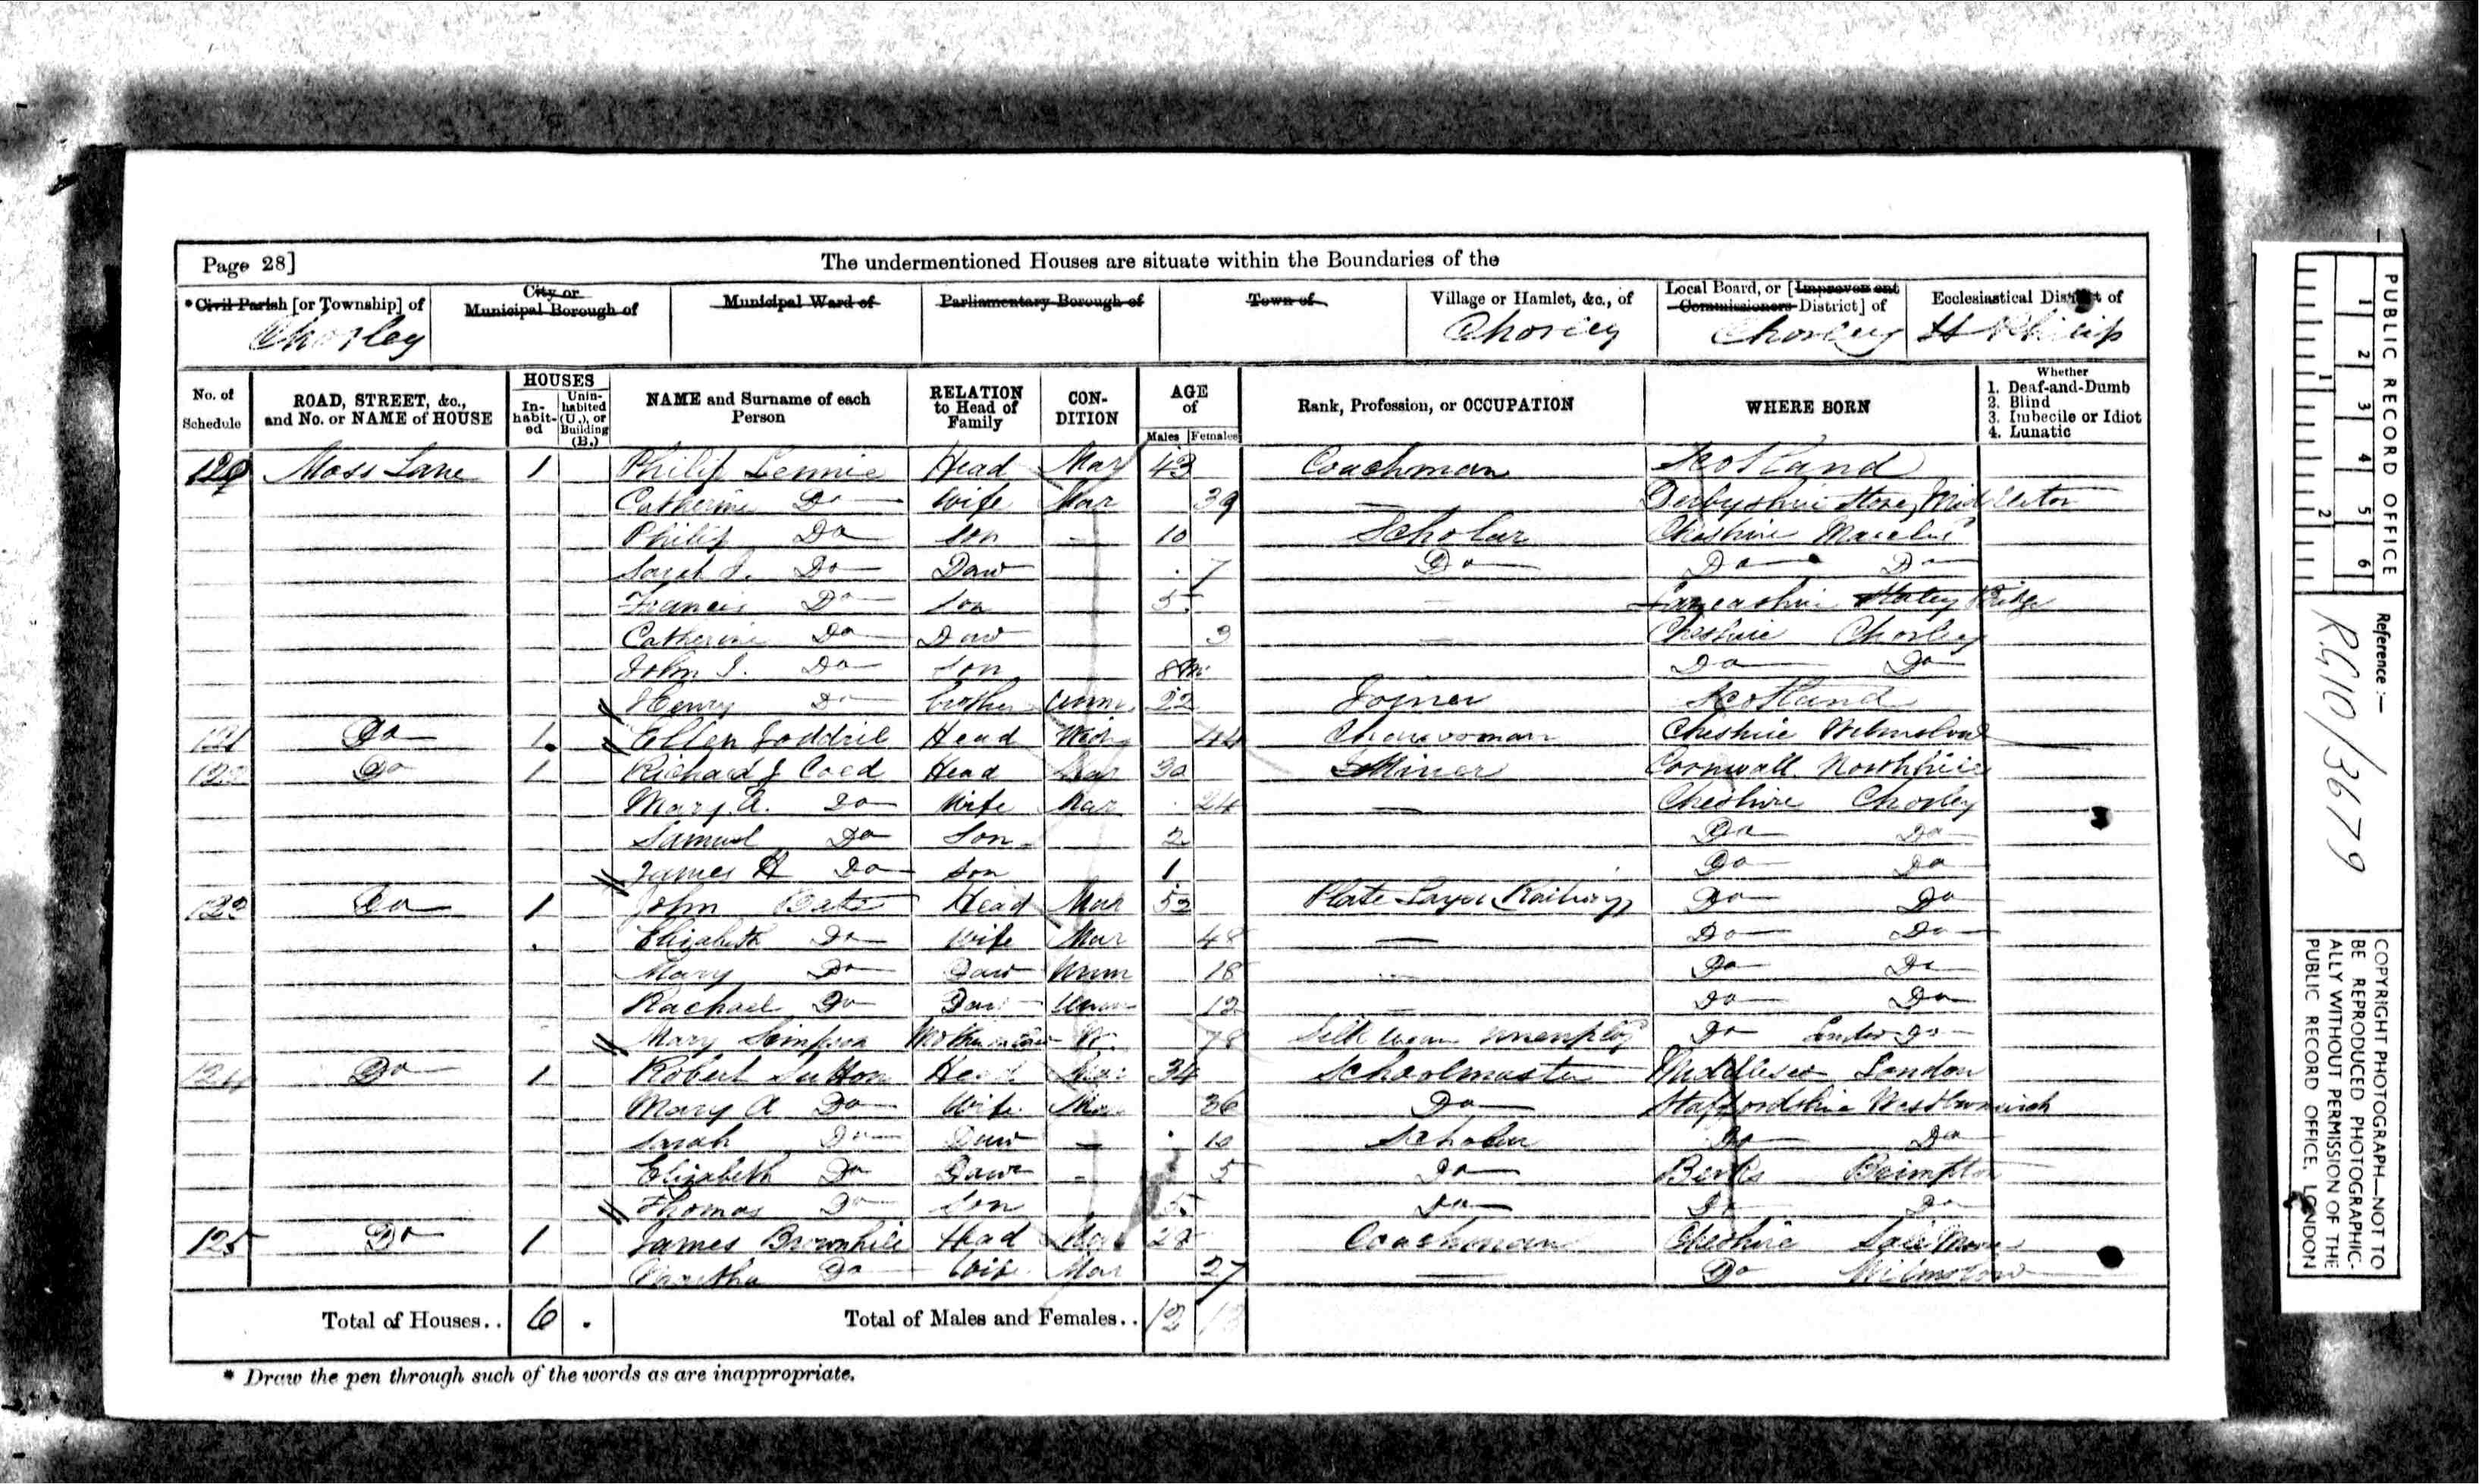 Page 28]
The undermentioned Houses are situate within the Boundaries of the
*Civil Parish [or Township] of
City or Municipal Borough of
Municipal Ward of
Parliamentary Borough of
Town of
Village or Hamlet, &c., of
Local Board, or [Improvement Commissioners District] of
Ecclesiastical District of
Chorley
Chorley
Chorley
St Philip
No. of Schedule
ROAD, STREET, &c., and No. or NAME of HOUSE
HOUSES
In-habit-ed
Unin-habited (U.), or Building (B.)
NAME and Surname of each Person
RELATION to Head of Family
CON-DITION
AGE of
Males
Females
Rank, Profession, or OCCUPATION
WHERE BORN
Whether
1. Deaf-and-Dumb
2. Blind
3. Imbecile or Idiot
4. Lunatic
Moss Lane 1 Philip Lennie Head Mar 43 Coachman Scotland
Catherine Do Wife Mar 39 — Derbyshire Stoney Middleton
Philip Do Son - 10 Scholar Cheshire
Sarah Do Daur 7 Do Do Do
Francis Do Son 5 — Lancashire
Catherine Do Daur 3 — Cheshire Chorley
John Do Son 8m Do Do
Henry Do brother Unm 22 Joiner Scotland
121 Do 1 Ellen Head Wid 44 Charwoman Cheshire Wilmslow
122 Do 1 Richard J Coed Head Mar 30 Miner Cornwall Northhill
Mary A. Do Wife Mar 24 — Cheshire Chorley
Samuel Do Son 2 Do Do
James H Do Son 1 Do Do
123 Do 1 John Head Mar 52 Plate Layer Railway Do Do
Elizabeth Do Wife Mar 48 — Do Do
Mary Do Daur Unm 18 Do Do
Rachael Do Daur Unm 12 Do Do
Mary Simpson Mother in Law W. 78 Silk Do
124 Do 1 Robert Sutton Head Mar 34 Schoolmaster Middlesex London
Mary A Do Wife Mar 36 Do Staffordshire Westbromwich
Sarah Do Daur - 10 Scholar Do Do
Elizabeth Do Daur - 5 Do Berks Brimpton
Thomas Do Son 5 Do Do Do
125 Do 1 James Brownhill Head Mar 28 Coachman Cheshire Sale
Martha Do Wife Mar 27 — Do Wilmslow
Total of Houses.. 6 Total of Males and Females.. 12 13
* Draw the pen through such of the words as are inappropriate.
PUBLIC RECORD OFFICE
1 2 3 4 5 6
1 2
Reference :—
RG10/3679
COPYRIGHT PHOTOGRAPH—NOT TO
BE REPRODUCED PHOTOGRAPHIC-
ALLY WITHOUT PERMISSION OF THE
PUBLIC RECORD OFFICE, LONDON